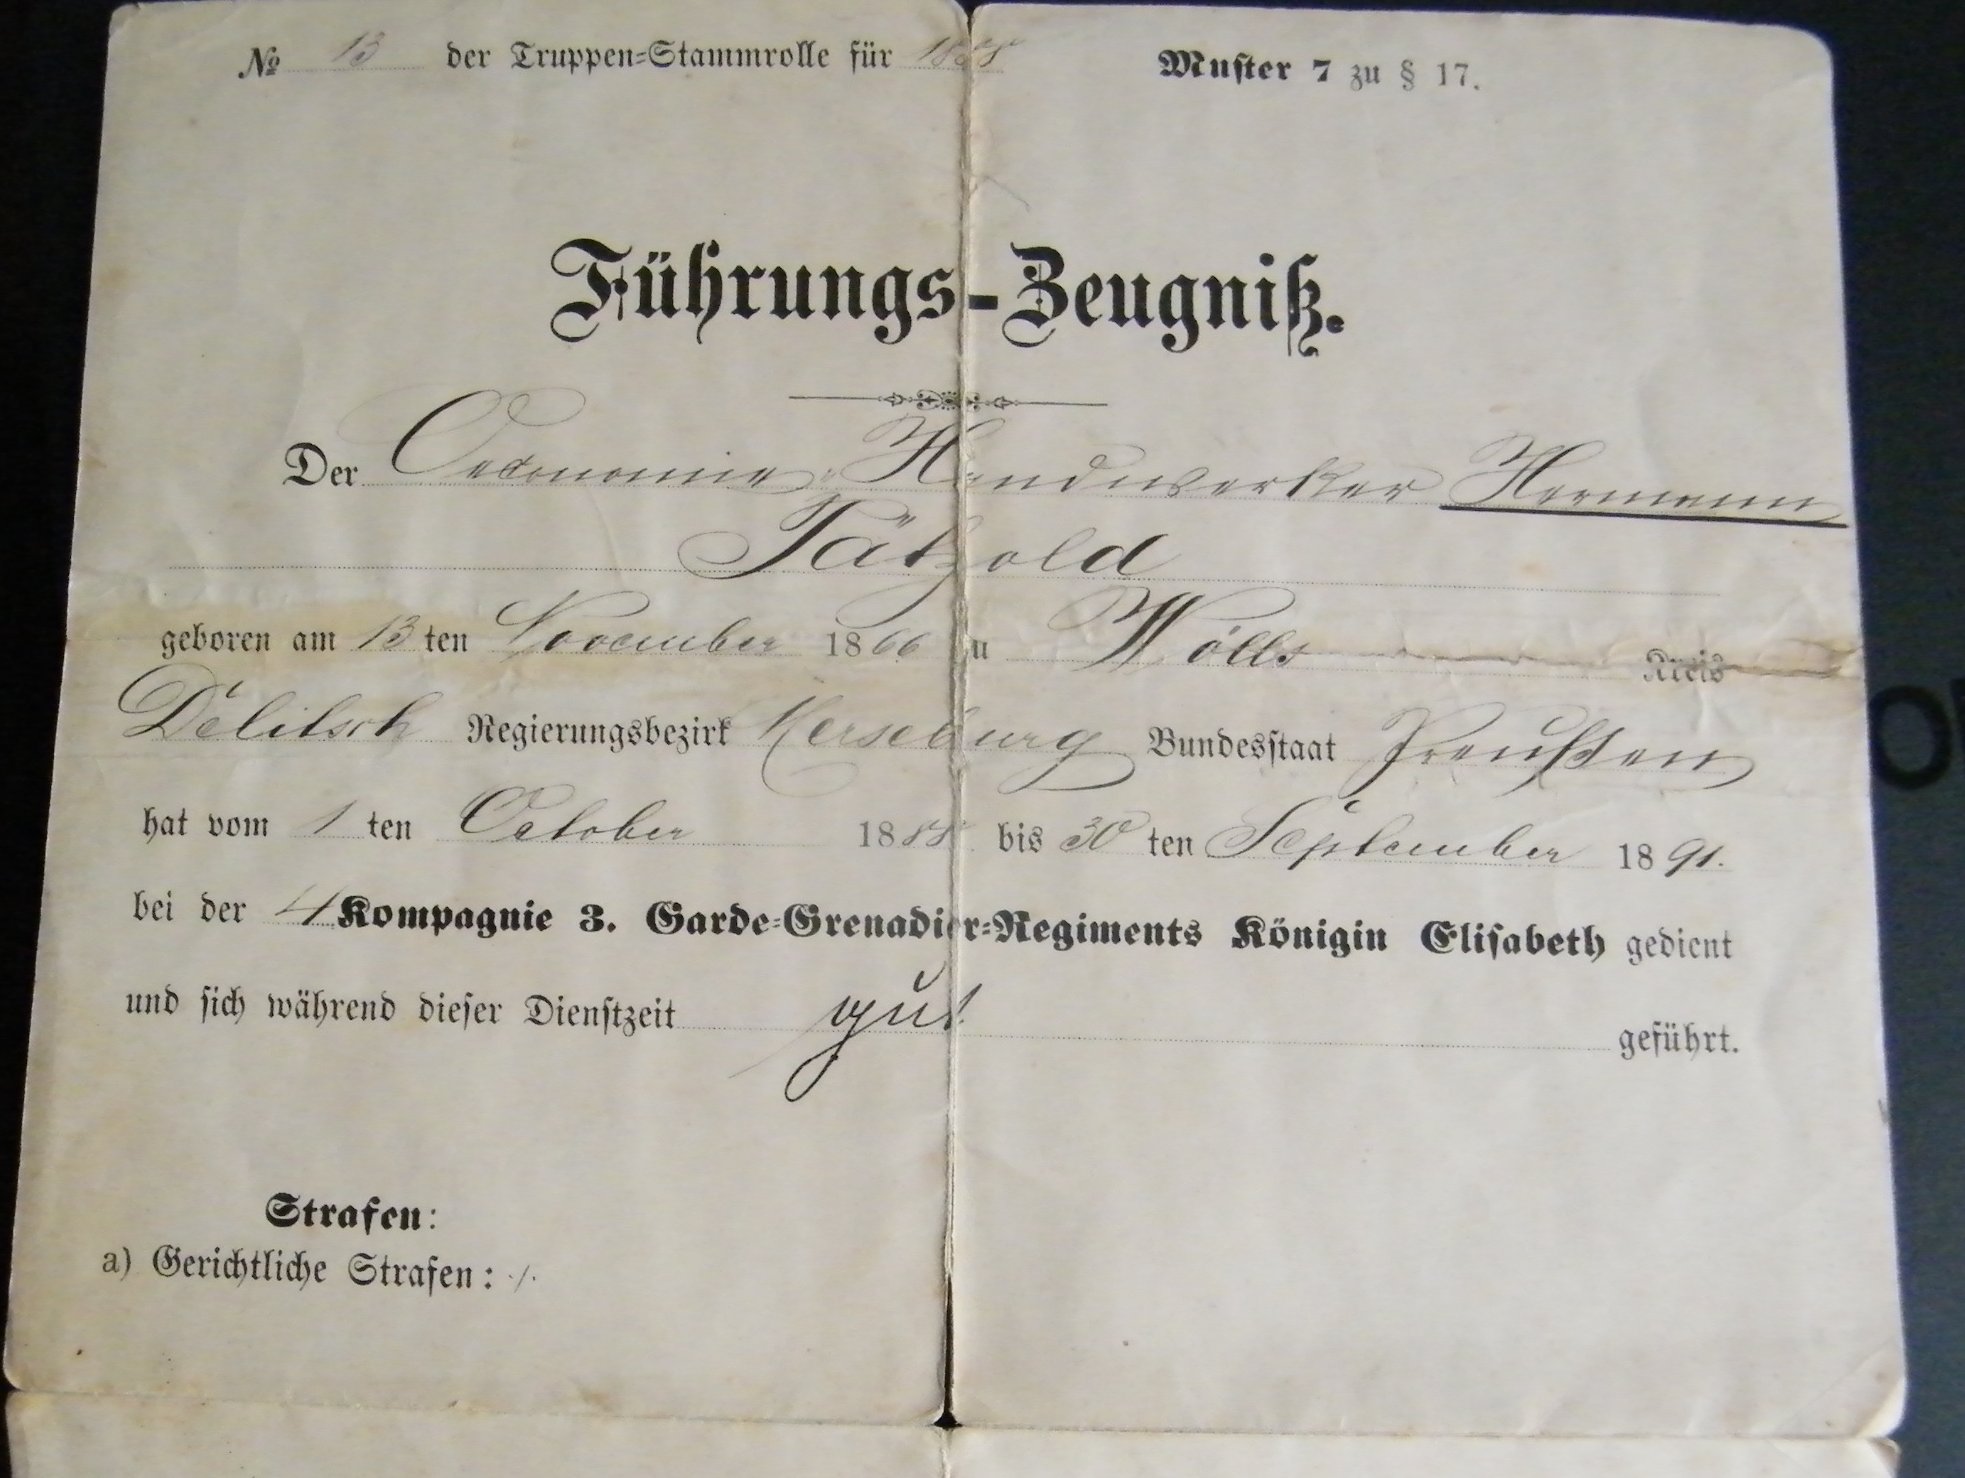 № 13 der Truppen-Stammrolle für 1888
Muster 7 zu § 17.
Führungs-Zeugniß.
Der Oeconomie-Handwerker Hermann
Tätzold
geboren am 13 ten November 1866 zu Wölls Kreis
Delitsch Regierungsbezirk Merseburg Bundesstaat Preußen
hat vom 1 ten October 1888 bis 30 ten September 1891.
bei der 4 Kompagnie 3. Garde-Grenadier-Regiments Königin Elisabeth gedient
und sich während dieser Dienstzeit gut geführt.
Strafen:
a) Gerichtliche Strafen: ./.